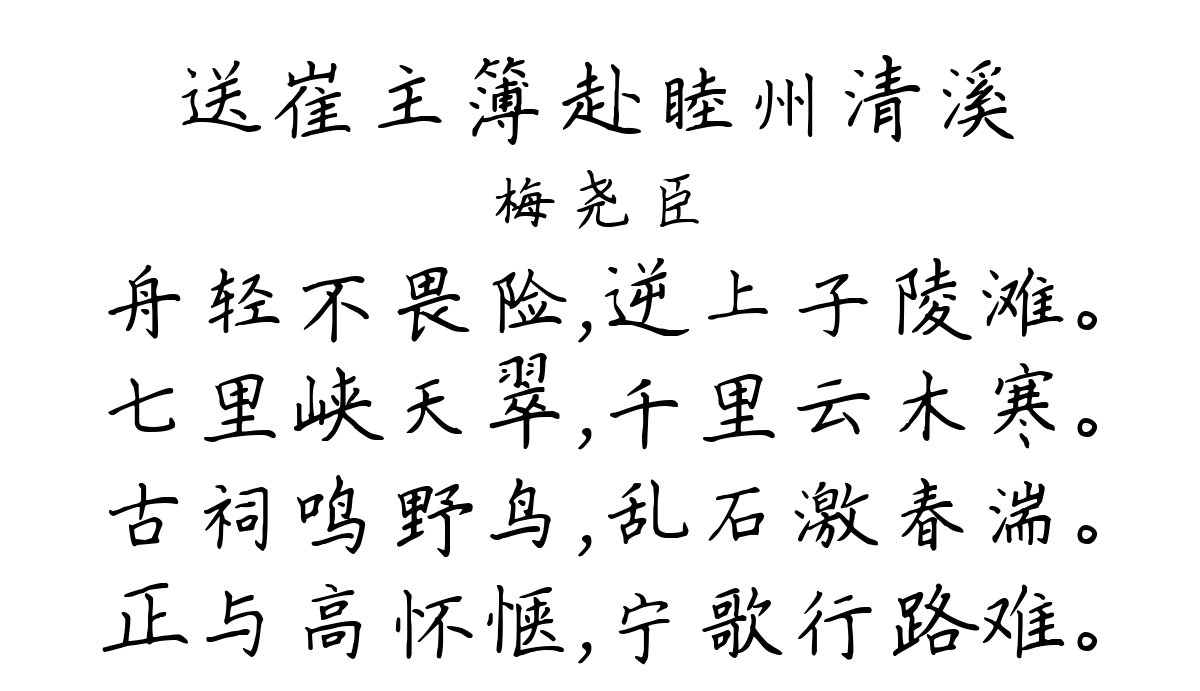 送崔主簿赴睦州清溪
梅尧臣
舟轻不畏险,逆上子陵滩。
七里峡天翠,千里云木寒。
古祠鸣野鸟,乱石激春湍。
正与高怀惬,宁歌行路难。